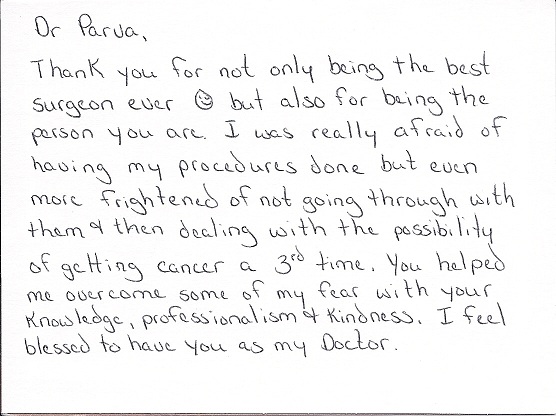 Dr Parva,
Thank you for not only being the best
surgeon ever ☺ but also for being the
person you are. I was really afraid of
having my procedures done but even
more frightened of not going through with
them & then dealing with the possibility
of getting cancer a 3rd time. You helped
me overcome some of my fear with your
Knowledge, professionalism & Kindness. I feel
blessed to have you as my Doctor.